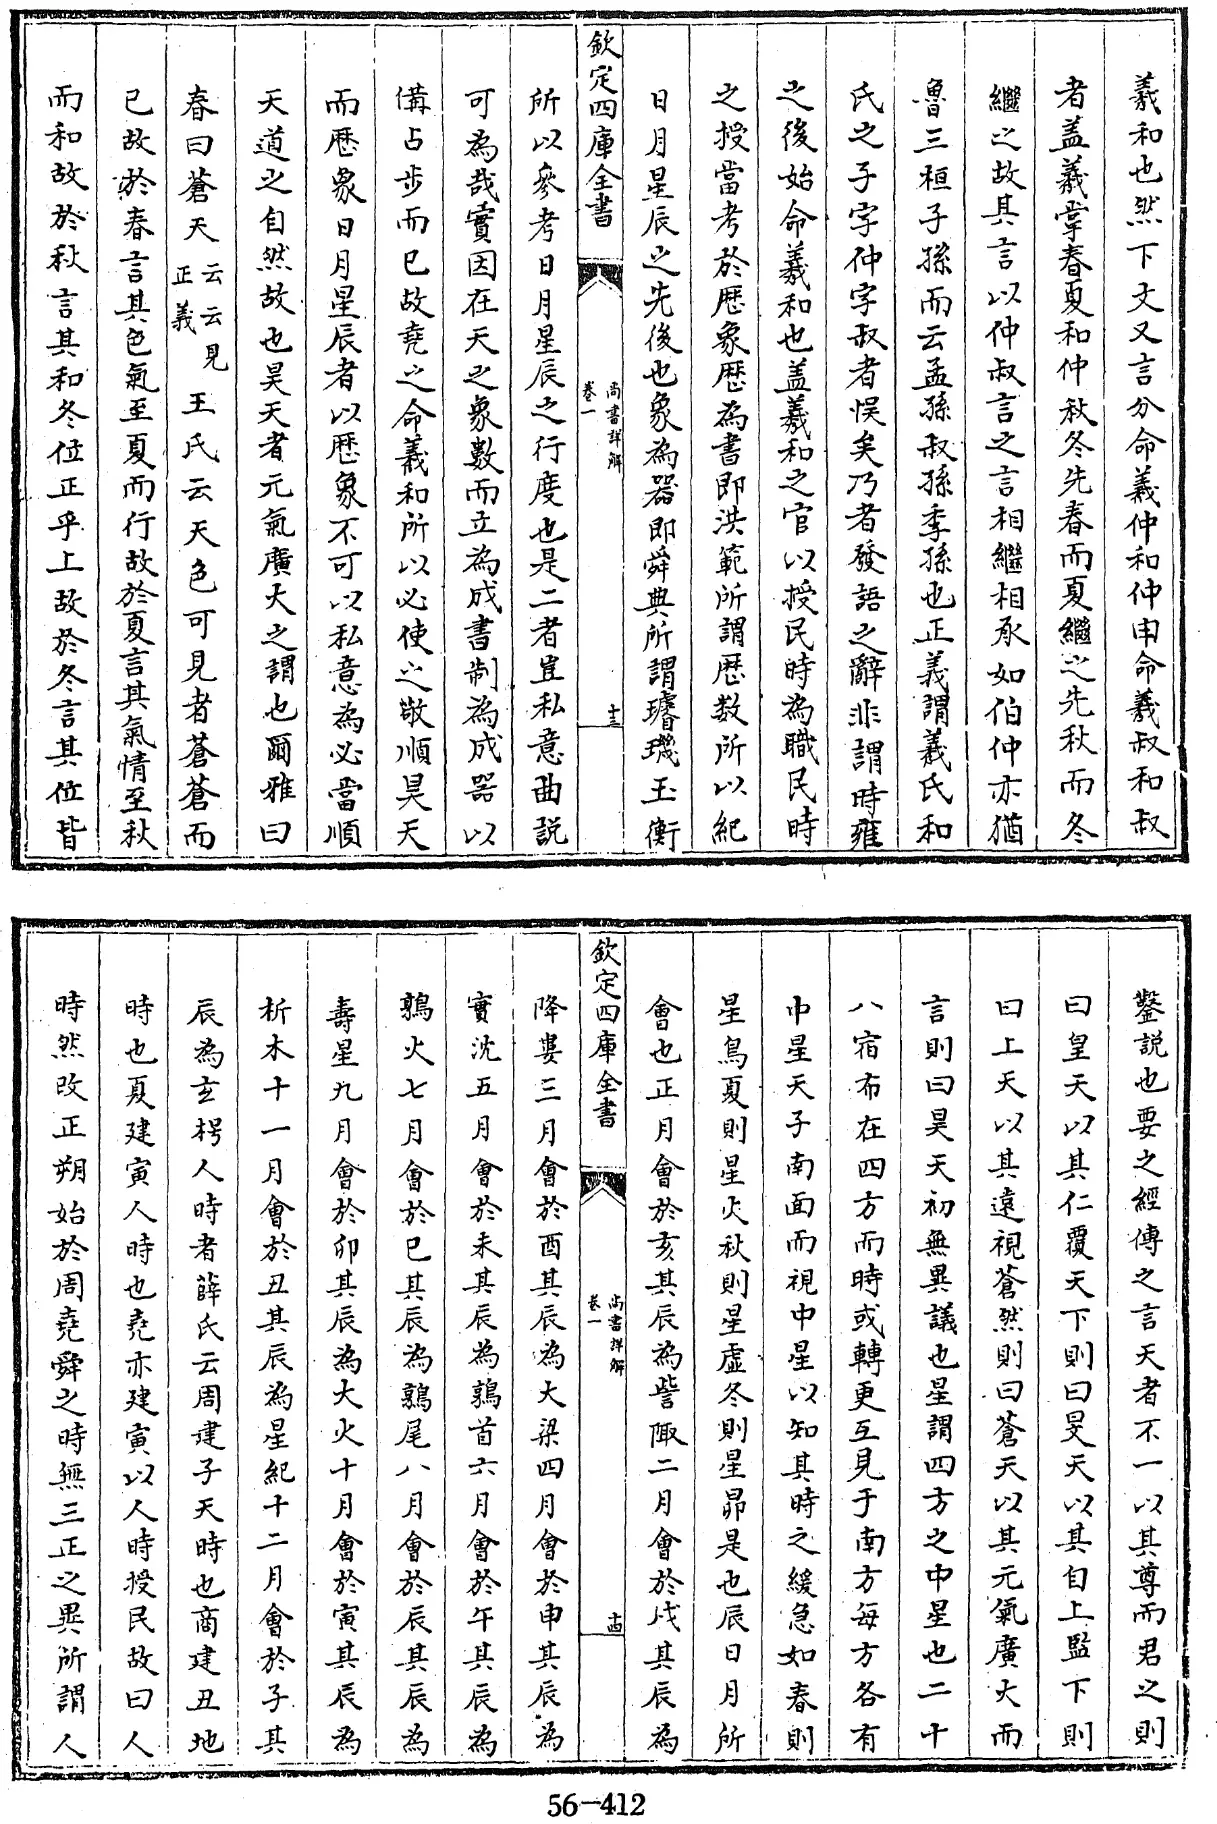 羲和也然下文又言分命羲仲和仲申命羲叔和叔
者盖羲掌春夏和仲秋冬先春而夏繼之先秋而冬
繼之故其言以仲叔言之言相繼相承如伯仲亦猶
魯三桓子孫而云孟孫叔孫季孫也正義謂羲氏和
氏之子字仲字叔者悮矣乃者發語之辭非謂時雍
之後始命羲和也盖羲和之官以授民時為職民時
之授當考於歴象歴為書即洪範所謂歴数所以紀
日月星辰之先後也象為器即舜典所謂璿璣玉衡
欽定四庫全書
尚書詳解
卷一
十三
所以參考日月星辰之行度也是二者豈私意曲説
可為哉實因在天之象數而立為成書制為成器以
備占步而已故堯之命羲和所以必使之敬順昊天
而歴象日月星辰者以歴象不可以私意為必當順
天道之自然故也昊天者元氣廣大之謂也爾雅曰
春曰蒼天云云見正義王氏云天色可見者蒼蒼而
已故於春言其色氣至夏而行故於夏言其氣情至秋
而和故於秋言其和冬位正乎上故於冬言其位皆
鑿説也要之經傳之言天者不一以其尊而君之則
曰皇天以其仁覆天下則曰旻天以其自上監下則
曰上天以其遠視蒼然則曰蒼天以其元氣廣大而
言則曰昊天初無異議也星謂四方之中星也二十
八宿布在四方而時或轉更互見于南方每方各有
中星天子南面而視中星以知其時之緩急如春則
星鳥夏則星火秋則星虛冬則星昴是也辰日月所
會也正月會於亥其辰為訾陬二月會於戌其辰為
欽定四庫全書
尚書詳解
卷一
十四
降婁三月會於酉其辰為大梁四月會於申其辰為
實沈五月會於未其辰為鶉首六月會於午其辰為
鶉火七月會於巳其辰為鶉尾八月會於辰其辰為
壽星九月會於卯其辰為大火十月會於寅其辰為
析木十一月會於丑其辰為星紀十二月會於子其
辰為玄枵人時者薛氏云周建子天時也商建丑地
時也夏建寅人時也堯亦建寅以人時授民故曰人
時然改正朔始於周堯舜之時無三正之異所謂人
56-412